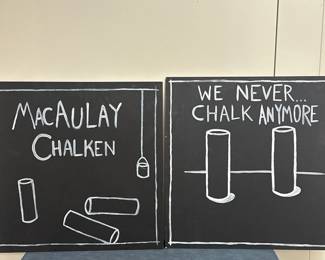 MACAULAY
CHALKEN
WE NEVER...
CHALK ANYMORE